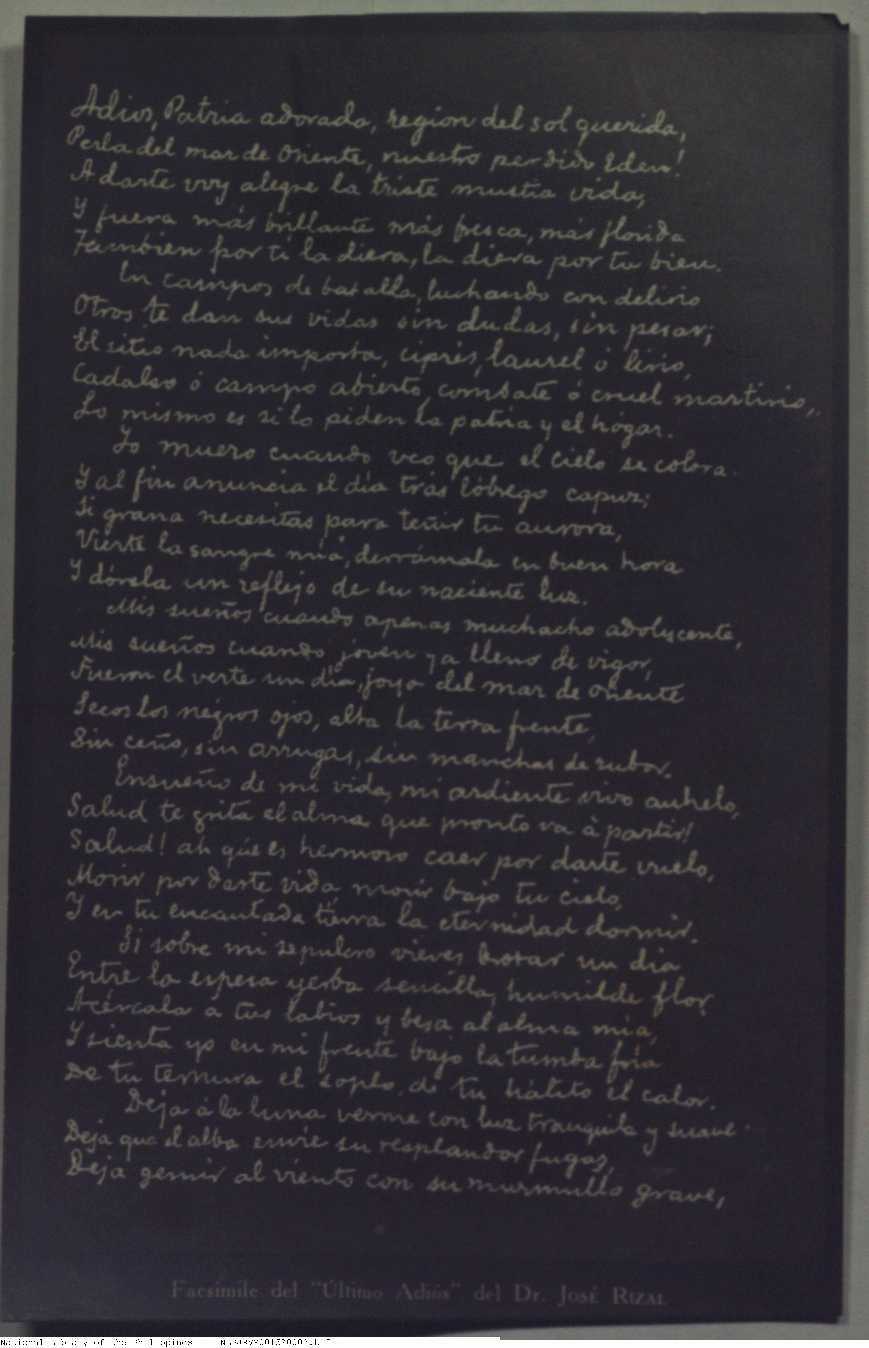 Adios, Patria adorada, region del sol querida,
Perla del mar de Oriente, nuestro perdido Eden!
A darte voy alegre la triste mustia vida,
Y fuera más brillante más fresca, más florida
Tambien por ti la diera, la diera por tu bien.
En campos de batalla, luchando con delirio
Otros te dan sus vidas sin dudas, sin pesar;
El sitio nada importa, ciprés, laurel ó lirio,
Cadalso ó campo abierto, combate ó cruel martirio,
Lo mismo es si lo piden la patria y el hogar.
Yo muero cuando veo que el cielo se colora
Y al fin anuncia el día trás lóbrego capuz;
Si grana necesitas para teñir tu aurora,
Vierte la sangre mía, derrámala en buen hora
Y dórela un reflejo de su naciente luz.
Mis sueños cuando apenas muchacho adolescente,
Mis sueños cuando joven ya lleno de vigor,
Fueron el verte un día, joya del mar de oriente
Secos los negros ojos, alta la tersa frente,
Sin ceño, sin arrugas, sin manchas de rubor.
Ensueño de mi vida, mi ardiente vivo anhelo,
Salud te grita el alma que pronto va á partir!
Salud! ah qúe es hermoso caer por darte vuelo,
Morir por darte vida, morir bajo tu cielo,
Y en tu encantada tierra la eternidad dormir.
Si sobre mi sepulcro vieres brotar un dia
Entre la espesa yerba sencilla, humilde flor,
Acércala a tus labios y besa al alma mia,
Y sienta yo en mi frente bajo la tumba fria
De tu ternura el soplo, de tu hálito el calor.
Deja á la luna verme con luz tranquila y suave
Deja que el alba envíe su resplandor fugaz,
Deja gemir al viento con su murmullo grave,
Facsimile del "Último Adiós" del Dr. José Rizal
National Library of the Philippines